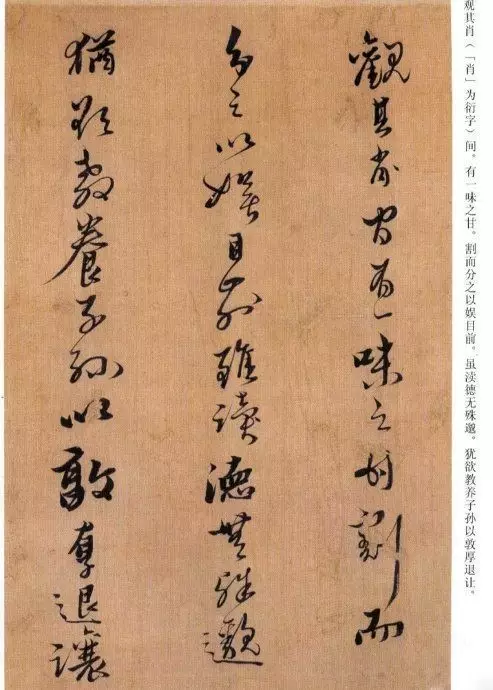 观其肖(「肖」为衍字)间。有一味之甘。割而分之以娱目前。虽渎德无殊邈。犹欲教养子孙以敦厚退让。
觀其肖間有一味之甘割而
分之以娛目前雖讀德無殊邈
猶欲教養子孫以敦厚退讓